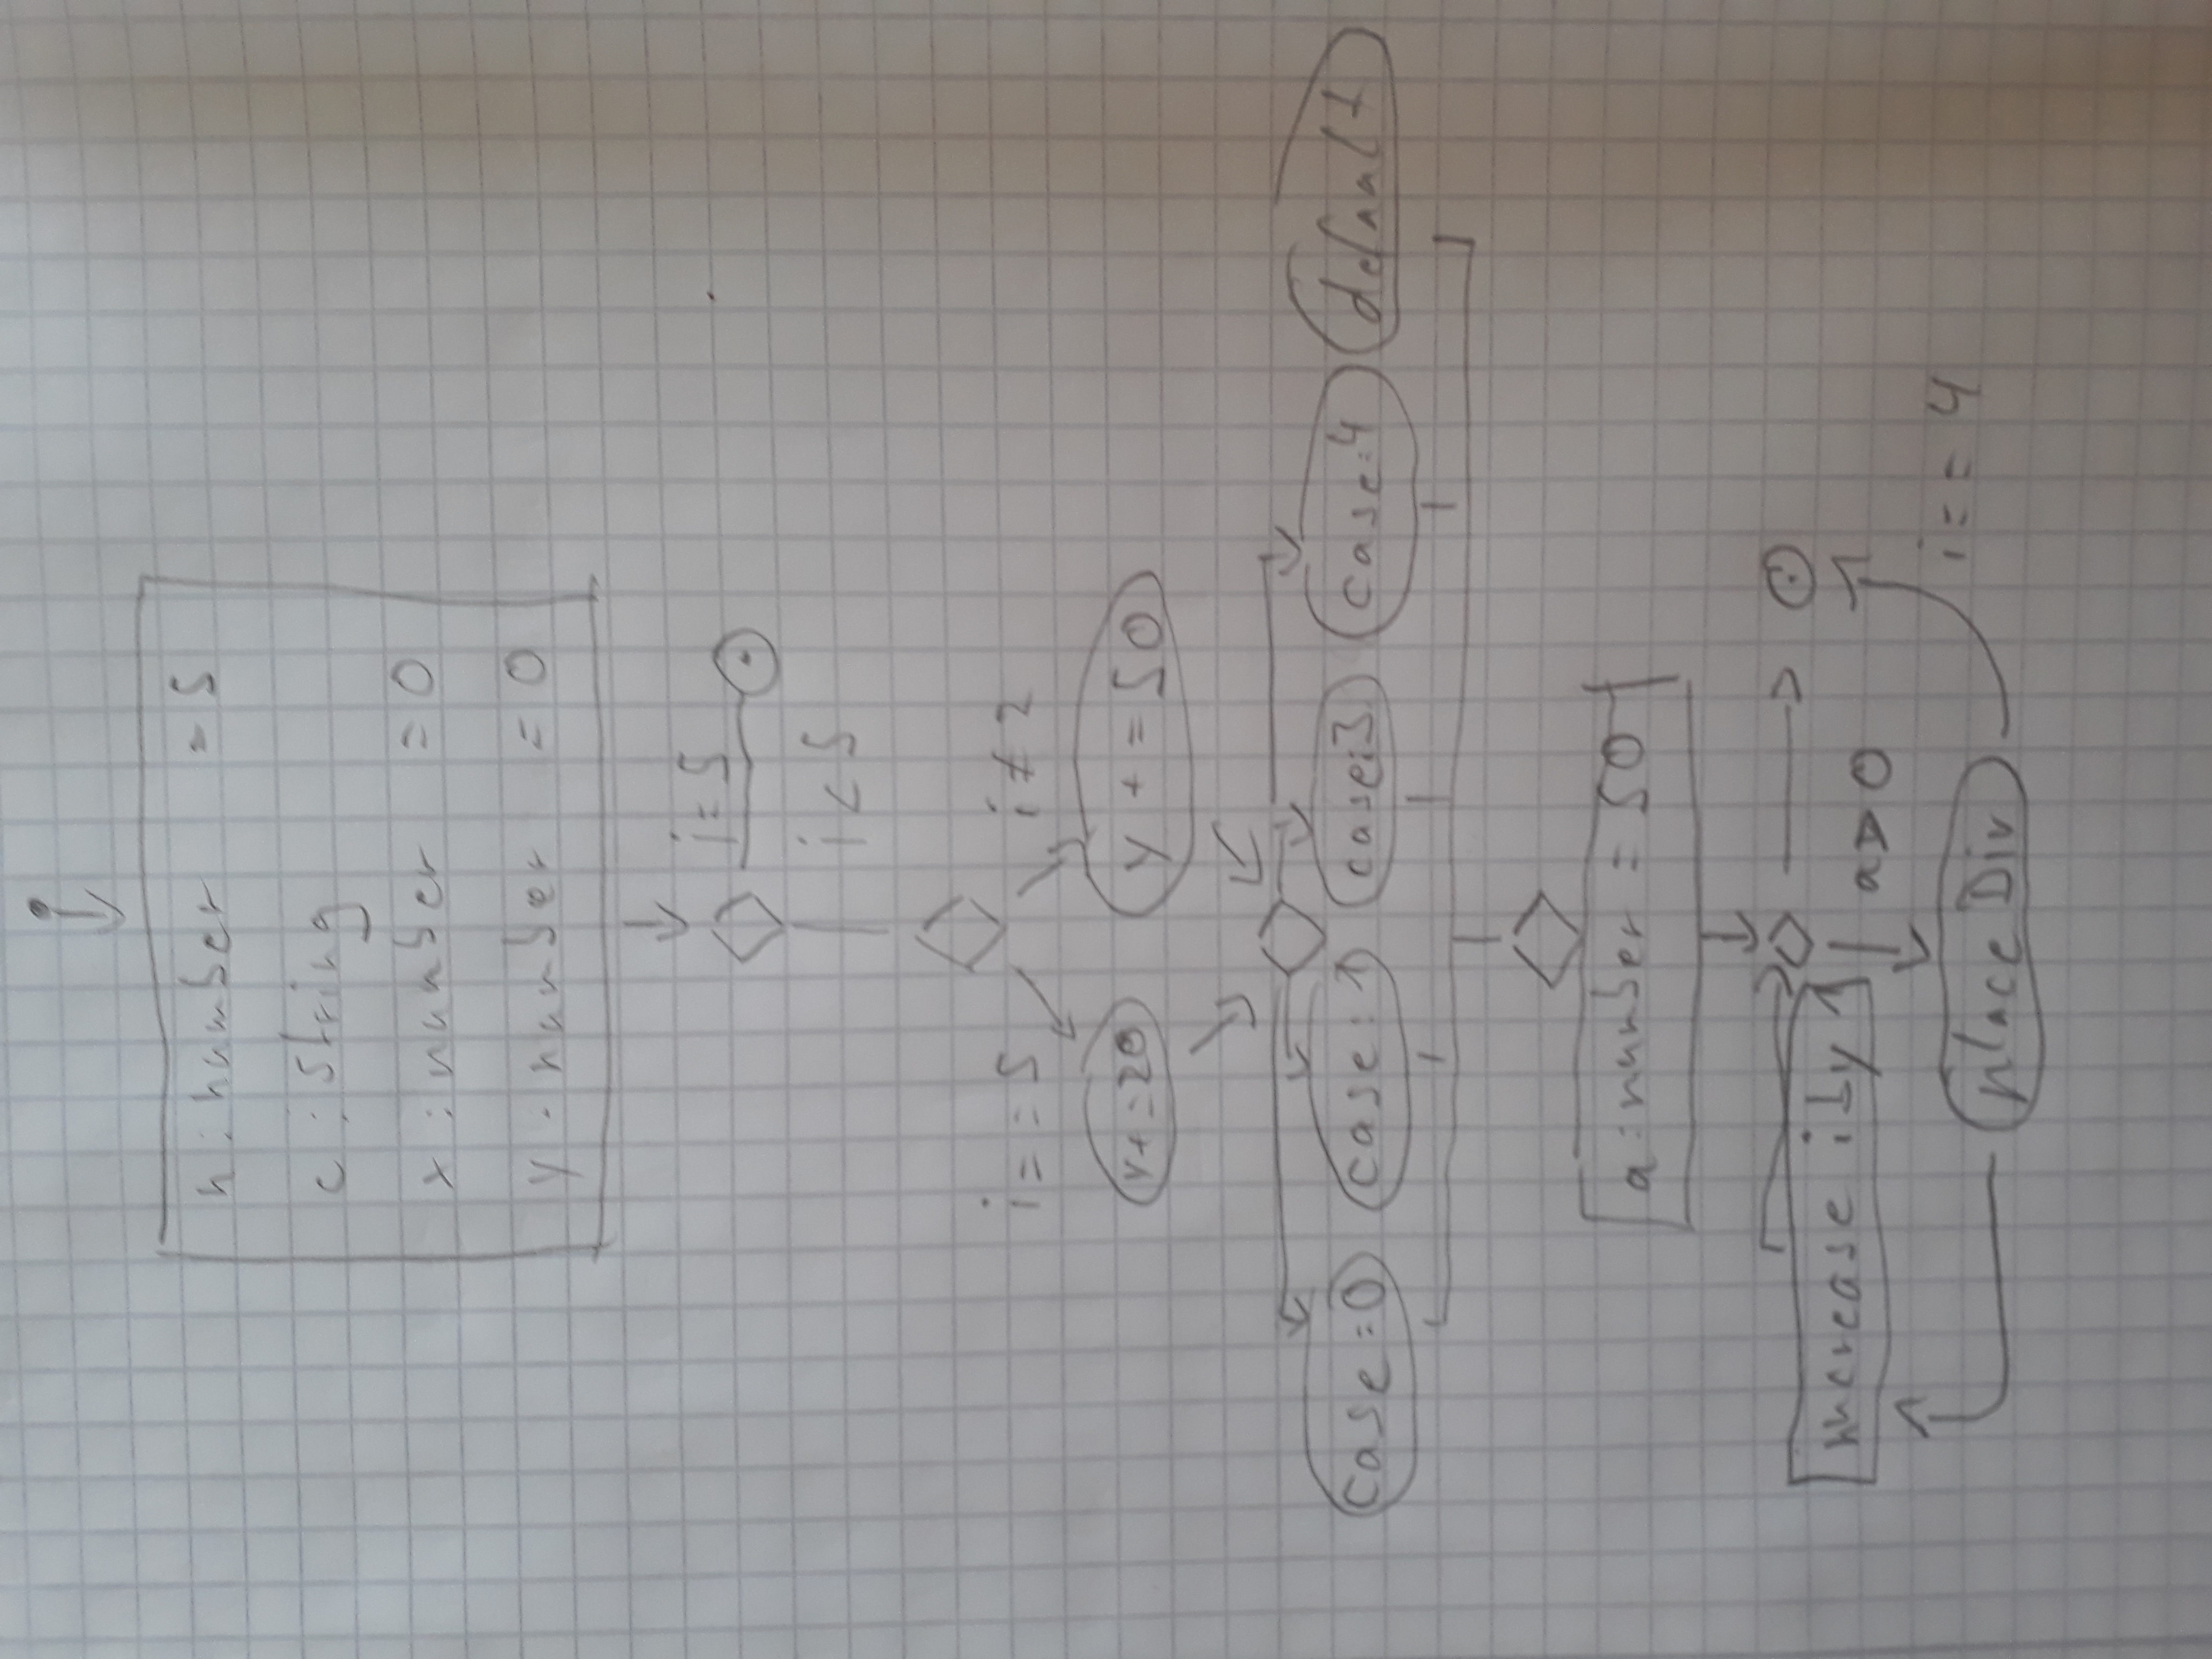 n : number = 5
c : string
x : number = 0
y : number = 0
i = 5
i < 5
i = = 5
i ≠ 2
y + = 20
y + = 50
case : 0
case : 1
case : 3
case : 4
default
a : number = 50
increase i by 1
a > 0
i = = 4
place Div